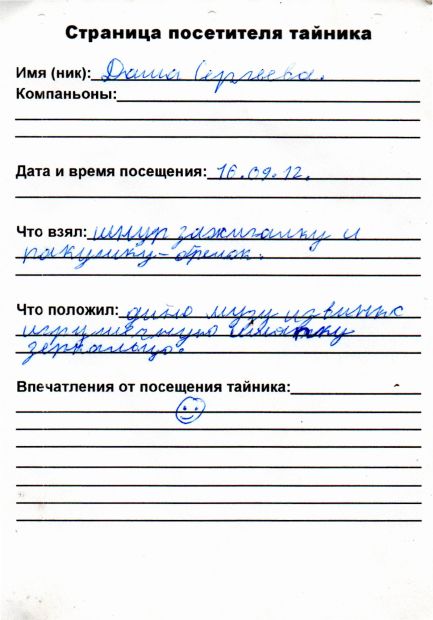 Страница посетителя тайника
Имя (ник): Даша Сергеева.
Компаньоны:
Дата и время посещения: 16.09.12.
Что взял: шнур зажигалку и
ракушку-брелок.
Что положил: фито музу из винкс
игрушечную
зеркальцо.
Впечатления от посещения тайника: